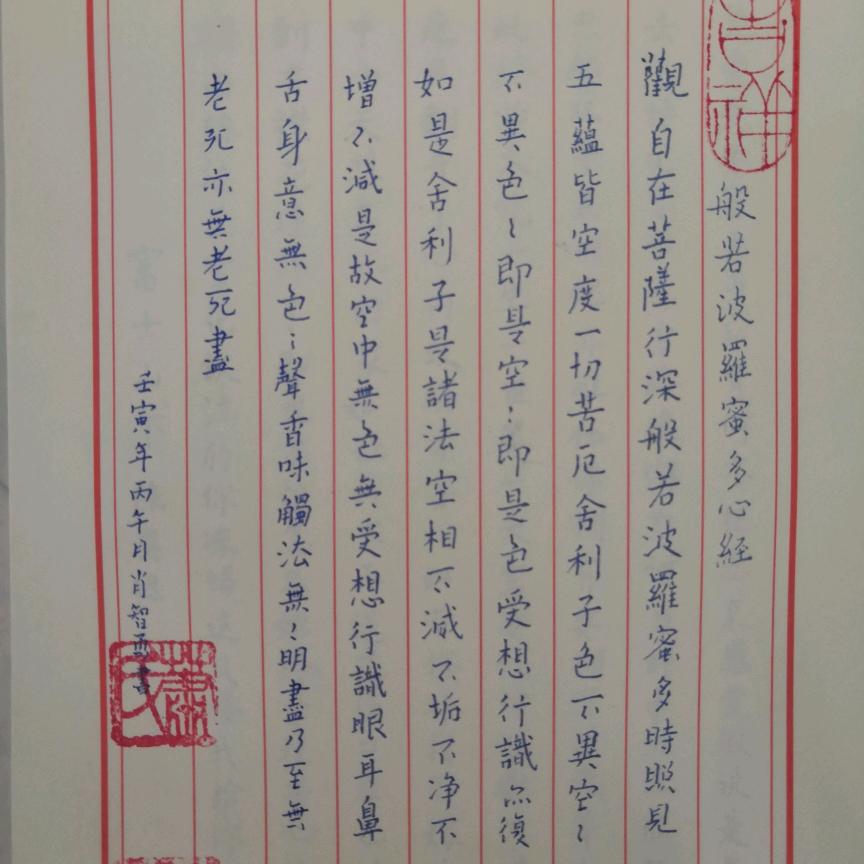 吉祥
般若波羅蜜多心経
觀自在菩薩行深般若波羅蜜多時照見
五蘊皆空度一切苦厄舍利子色不異空〻
不異色〻即是空〻即是色受想行識亦復
如是舍利子是諸法空相不減不垢不净不
增不減是故空中無色無受想行識眼耳鼻
舌身意無色〻聲香味觸法無〻明盡乃至無
老死亦無老死盡
壬寅年丙午月肖智書
蕭氏